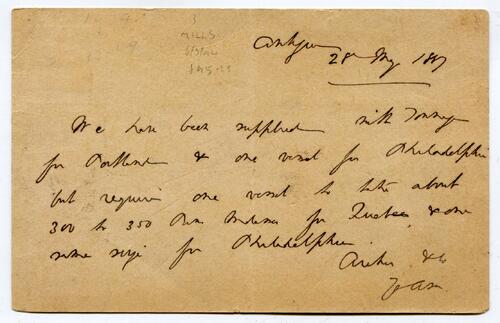 3
MILLS
Antigua
28 May 1887
We have been supplied with Tonnage
for Portland & one vessel for Philadelphia
but require one vessel to take about
300 to 350 Puns Molasses for Quebec & one
same size for Philadelphia.
& Co